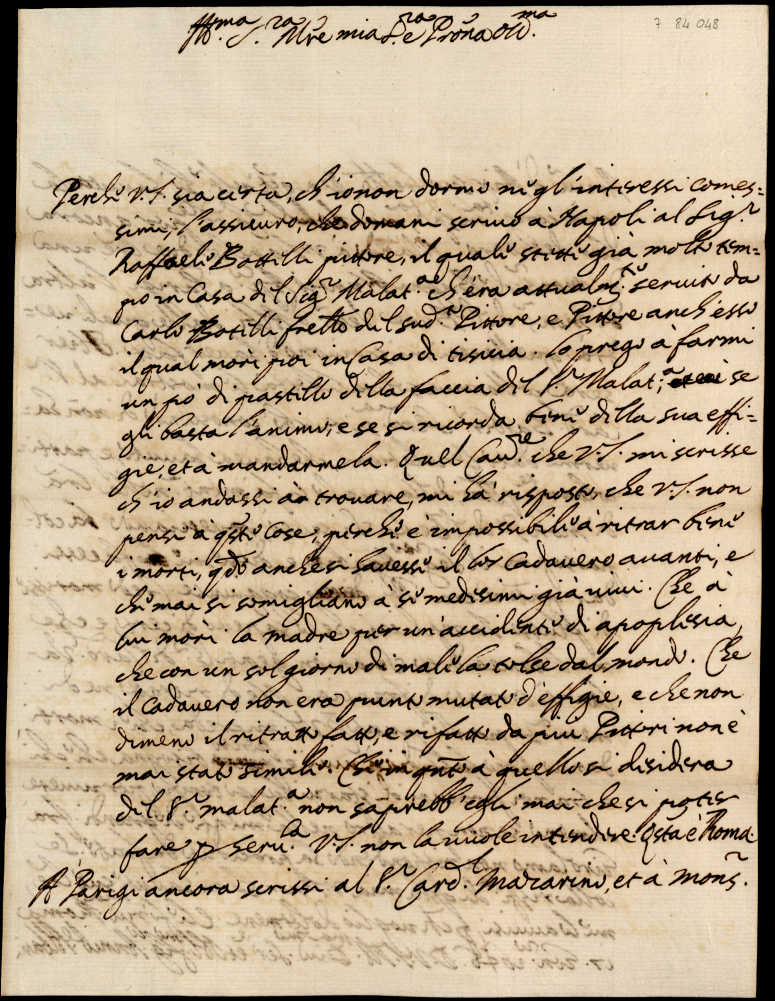 Ill.ma S.ra M're mia S.ra e Pro'na oss.ma
7 84 048
Perche V.S. sia certa, ch'io non dormo ne gl'interessi comes=
simi, l'assicuro, che domani scrivo à Napoli al Sig.r
Raffaele Botilli pittore, il quale stette già molto tem=
po in Casa del Sig.r Malat.a ch'era attualm.te servito da
Carlo Botilli fr'ello del sud.to Pittore, e Pittore anch'esso
il qual morì poi in Casa di tisicia. Lo prego à farmi
un pò di pastello della faccia del S.r Malat.a, se
gli basta l'animo, e se si ricorda bene della sua effi=
gie, et à mandarmela. Quel Cav.re che V.S. mi scrisse
ch'io andassi à trovare, mi hà risposto, che V.S. non
pensi à q'ste cose, perche è impossibile à ritrar bene
i morti, q'do anche si havesse il lor Cadavero avanti, e
che mai si somigliano à se medesimi già vivi. Che à
lui morì la madre per un'accidente di apoplesia,
che con un sol giorno di male la tolse dal mondo. Che
il Cadavero non era punto mutato d'effigie, e che non
dimeno il ritratto fatto, e rifatto da più Pittori non è
mai stato simile. Che in q'nto à quello si desidera
del S.r malat.a non saprebb'egli mai che si poter
fare p serv.la V.S. non la vuole intendere. Q'sta è Roma.
A Parigi ancora scrissi al S.r Card.l Mazarino, et à Mons.r